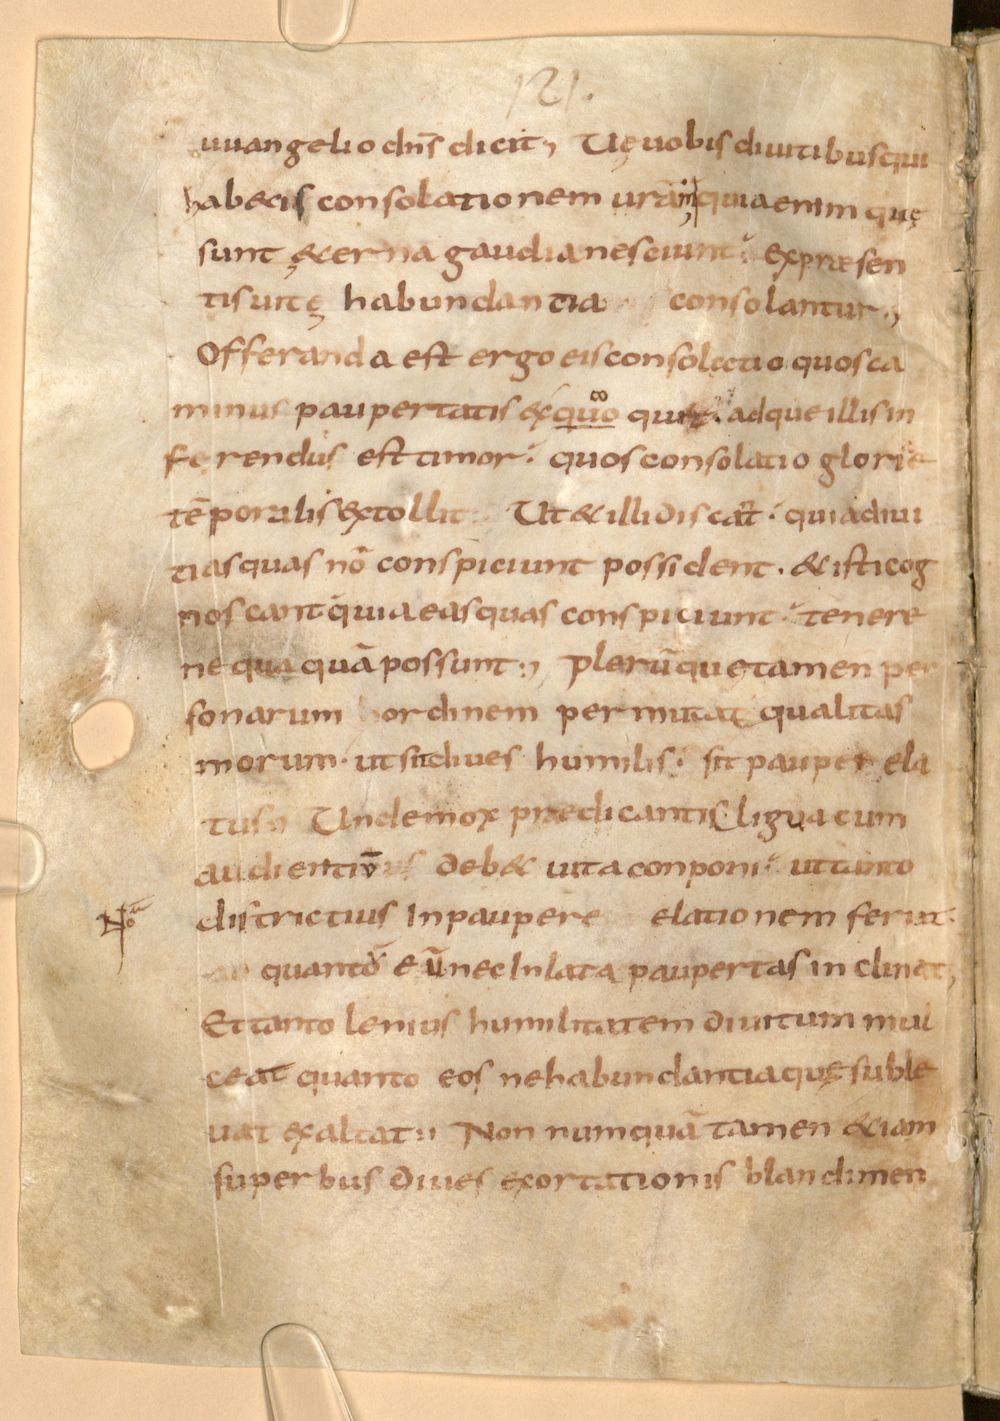 121.
uuangelio dn̄s dicit, Uę uobis diuitibus qui
hab&is consolationem urām, quia enim quę
sunt ę&erna gaudia nesciunt. Ex præsen
tis uitę habundantia consolantur.,
Offeranda est ergo eis consolatio quos ca
minus paupertatis exquo adque illis in
ferendus est timor. quos consolatio glorie
tēporalis extollit Ut & illi discant. quia diui
tias quas nō conspiciunt possident. & isti cog
noscant quia eas quas conspiciunt. tenere
ne qua quā possunt., plerūque tamen per
sonarum hordinem permutat qualitas
morum. ut sit diues humilis. sit pauper ela
tus., Unde mox prædicantis ligua cum
audientium deb& uita conponi. ut tanto
No
districtius In paupere elationem feriat.
quanto eū nec Inlata paupertas inclinat,
Et tanto lenius humilitatem diuitum mul
ceat quanto eos ne habundantia quę suble
uat exaltat., Non numquā tamen &iam
superbus diues exortationis blandimen